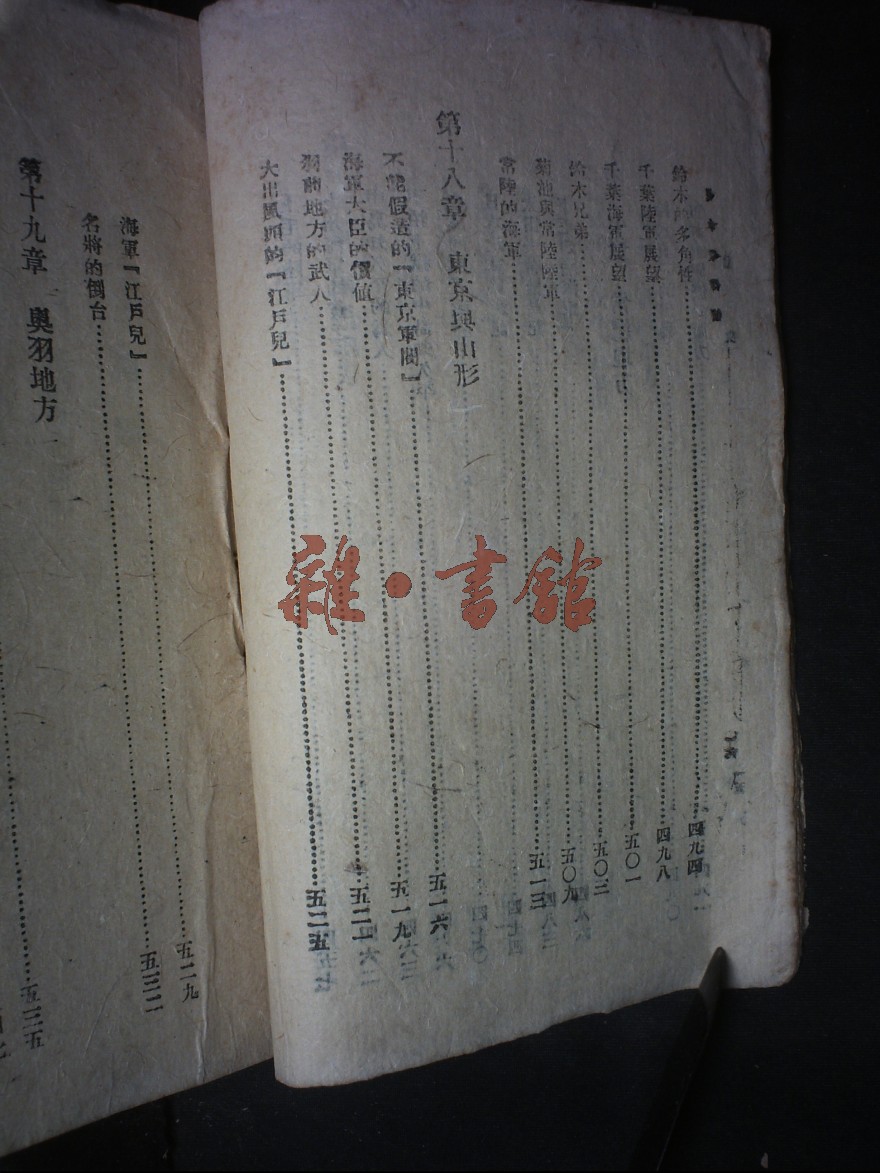 鈴木的多角性……四九四
千葉陸軍展望……四九八
千葉海軍展望……五〇一
鈴木兄弟……五〇三
菊池與常陸陸軍……五〇九
常陸的海軍……五一三
第十八章 東京與山形
不能假造的『東京軍閥』……五一六
海軍大臣的價値……五一九
羽前地方的武人……五二二
大出風頭的『江戶兒』……五二五
海軍『江戶兒』……五二九
名將的倒台……五三二
第十九章 奧羽地方
五三五
雜·書館